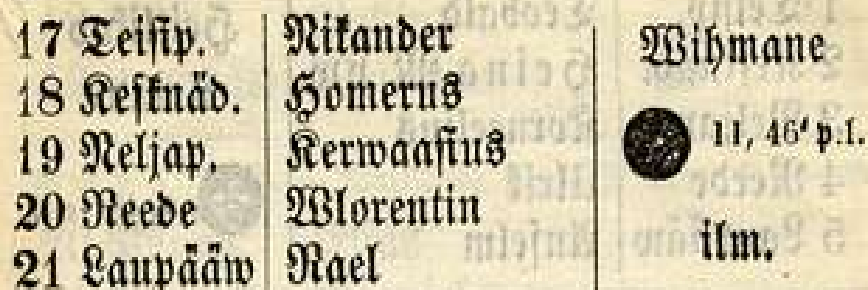 17 Teisip. Nikander Wihmane
18 Keſknäd. Homerus
19 Neljap. Kerwaaſius 11, 46' p.l.
20 Reede Wlorentin
21 Laupääw Nael ilm.